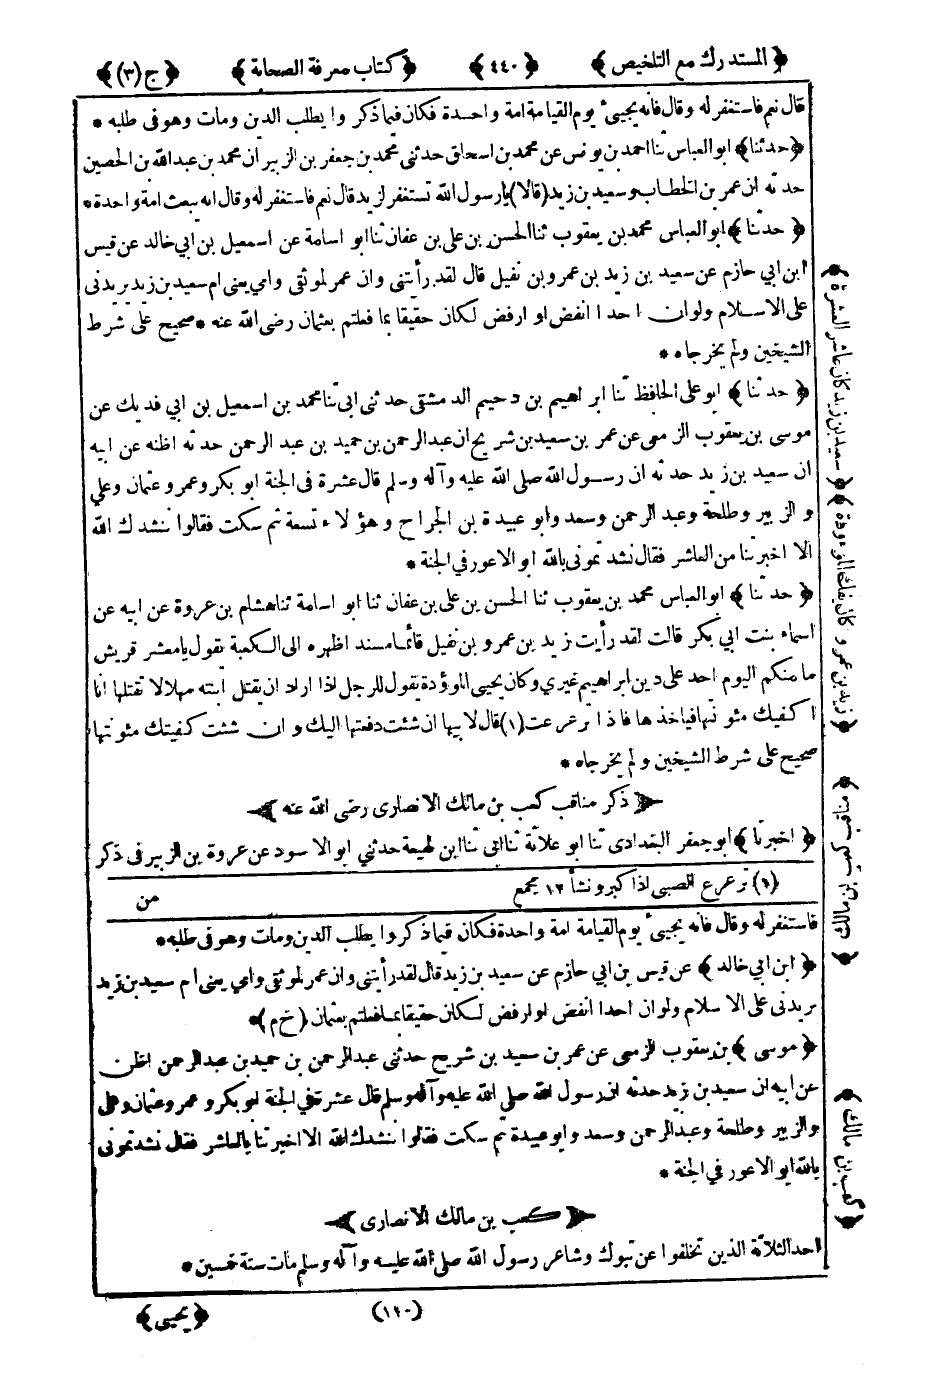 ﴿المستدرك مع التلخيص﴾ ﴿٤٤٠﴾ ﴿كتاب معرفة الصحابة﴾ ﴿ج(٣)﴾
قال نعم فاستغفر له وقال فانه يجيئ يوم القيامة امة واحدة فكان فيما ذكروا يطلب الدين ومات وهو فى طلبه *
﴿حدثنا﴾ ابو العباس ثنا احمد بن يونس عن محمد بن اسحاق حدثنى محمد بن جعفر بن الزبير ان محمد بن عبدالله بن الحصين
حدثه ان عمر بن الخطاب وسعيد بن زيد (قالا) يارسول الله تستغفر لزيد قال نعم فاستغفر له وقال انه يبعث امة واحدة *
﴿حدثنا﴾ ابو العباس محمد بن يعقوب ثنا الحسن بن على بن عفان ثنا ابو اسامة عن اسمعيل بن ابي خالد عن قيس
ابن ابي حازم عن سعيد بن زيد بن عمرو بن نفيل قال لقد رأيتنى وان عمر لموثقى وامي يعنى ام سعيد بن زيد يريدنى
على الاسلام ولو ان احدا انفض او ارفض لكان حقيقا بما فعلتم بعثمان رضى الله عنه * صحيح على شرط
الشيخين ولم يخرجاه *
﴿حدثنا﴾ ابو على الحافظ ثنا ابراهيم بن دحيم الدمشقى حدثنى ابى ثنا محمد بن اسمعيل بن ابي فديك عن
موسى بن يعقوب الزمعى عن عمر بن سعيد بن شريح ان عبدالرحمن بن حميد بن عبد الرحمن حدثه اظنه عن ابيه
ان سعيد بن زيد حدثه ان رسول الله صلى الله عليه وآله وسلم قال عشرة فى الجنة ابو بكر وعمر وعثمان وعلي
والزبير وطلحة وعبد الرحمن وسعد وابو عبيدة بن الجراح وهؤلاء تسعة ثم سكت فقالوا ننشدك الله
الا اخبرتنا من العاشر فقال نشدتمونى بالله ابو الاعور في الجنة *
﴿حدثنا﴾ ابو العباس محمد بن يعقوب ثنا الحسن بن على بن عفان ثنا ابو اسامة ثنا هشام بن عروة عن ابيه عن
اسماء بنت ابي بكر قالت لقد رأيت زيد بن عمرو بن نفيل قائما مسند اظهره الى الكعبة يقول يامعشر قريش
مامنكم اليوم احد على دين ابراهيم غيري وكان يحيى الموؤدة يقول للرجل اذا اراد ان يقتل ابنته مهلا لا تقتلها انا
اكفيك مئونتها فياخذها فاذا ترعرعت (١) قال لابيها ان شئت دفعتها اليك وان شئت كفيتك مئونتها
صحيح على شرط الشيخين ولم يخرجاه *
﴿ذكر مناقب كعب بن مالك الانصارى رضى الله عنه﴾
﴿اخبرنا﴾ ابو جعفر البغدادى ثنا ابو علاثة ثنا ابى ثنا ابن لهيعة حدثني ابو الاسود عن عروة بن الزبير فى ذكر
(١) ترعرع الصبى اذا كبر ونشأ ١٢ مجمع
من
فاستغفر له وقال فانه يجيئ يوم القيامة امة واحدة فكان فيما ذكروا يطلب الدين ومات وهو فى طلبه *
﴿ابن ابي خالد﴾ عن قيس بن ابي حازم عن سعيد بن زيد قال لقد رأيتنى وان عمر لموثقى وامي يعنى ام سعيد بن زيد
يريدنى على الاسلام ولو ان احدا انفض او ارفض لكان حقيقا بما فعلتم بعثمان (خ م) *
﴿موسى﴾ بن يعقوب الزمعى عن عمر بن سعيد بن شريح حدثنى عبدالرحمن بن حميد بن عبدالرحمن اظن
عن ابيه ان سعيد بن زيد حدثه ان رسول الله صلى الله عليه وآله وسلم قال عشرة في الجنة ابو بكر وعمر وعثمان وعلى
والزبير وطلحة وعبدالرحمن وسعد وابو عبيدة ثم سكت فقالوا ننشدك الله الا اخبرتنا بالعاشر فقال نشدتمونى
بالله ابو الاعور في الجنة *
﴿كعب بن مالك الانصارى﴾
احد الثلاثة الذين تخلفوا عن تبوك وشاعر رسول الله صلى الله عليه وآله وسلم مات سنة خمسين *
(١١٠) ﴿يحيى﴾
﴿سعيد بن زيد كان عاشر العشرة﴾
﴿زيد بن عمرو كان يفك الموءودة﴾
﴿كعب بن مالك﴾